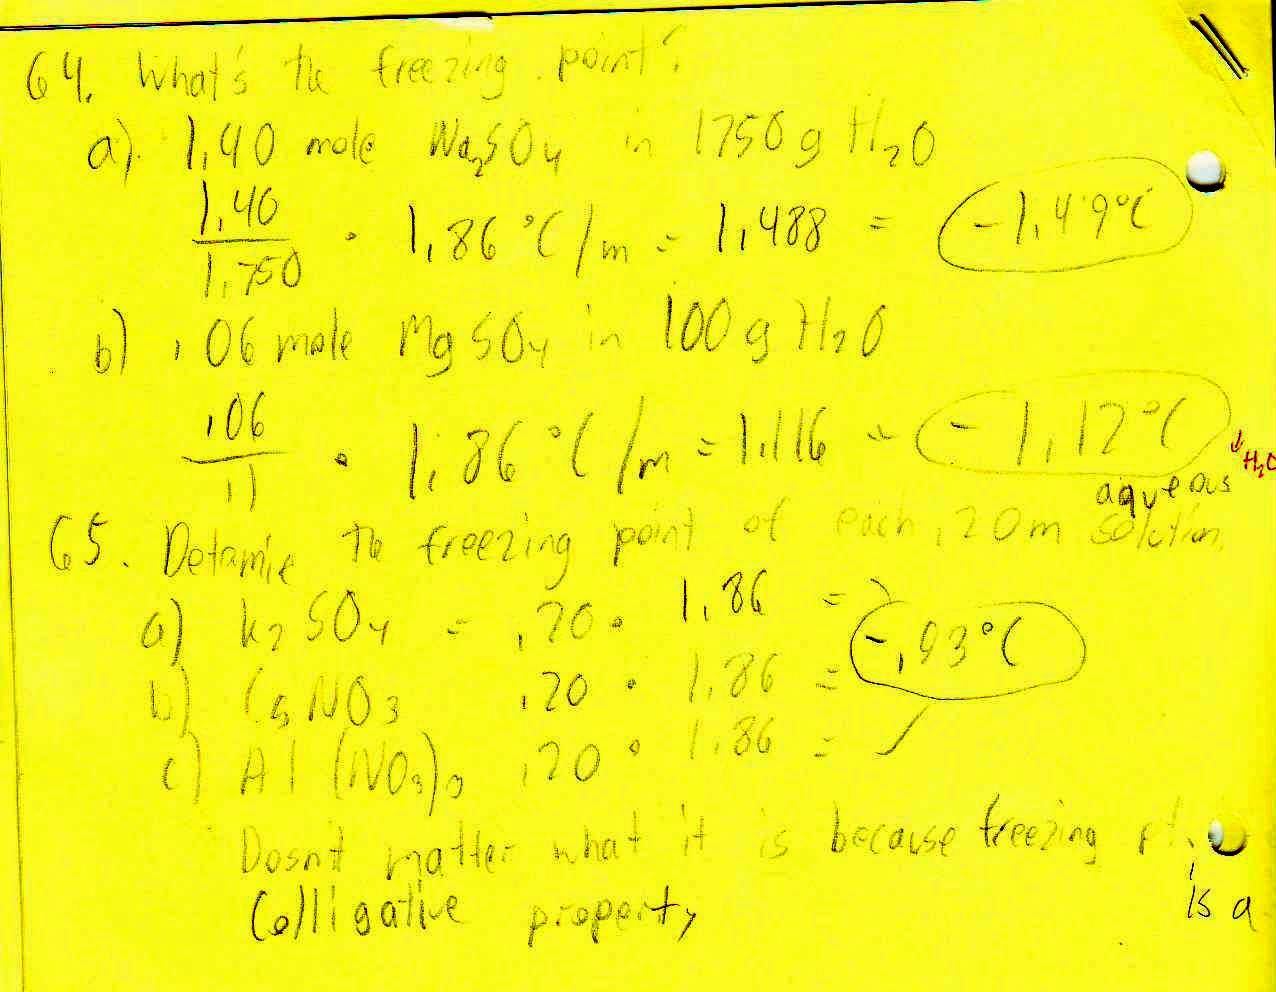 64. What's the freezing point?
a). 1.40 mole Na2SO4 in 1750 g H2O
1.40
1.750 · 1.86 °C/m = 1.488 = -1.49°C
b) .06 mole MgSO4 in 100 g H2O
.06
.1 · 1.86 °C/m = 1.116 = -1.12°C
↓ H2O
aqueous
65. Detamie the freezing point of each .20m solution.
a) K2SO4 = .20 · 1.86 =
-.93°C
b) CsNO3 .20 · 1.86 =
c) Al(NO3)3 .20 · 1.86 =
Dosnt matter what it is because freezing pt.
is a
Colligative property